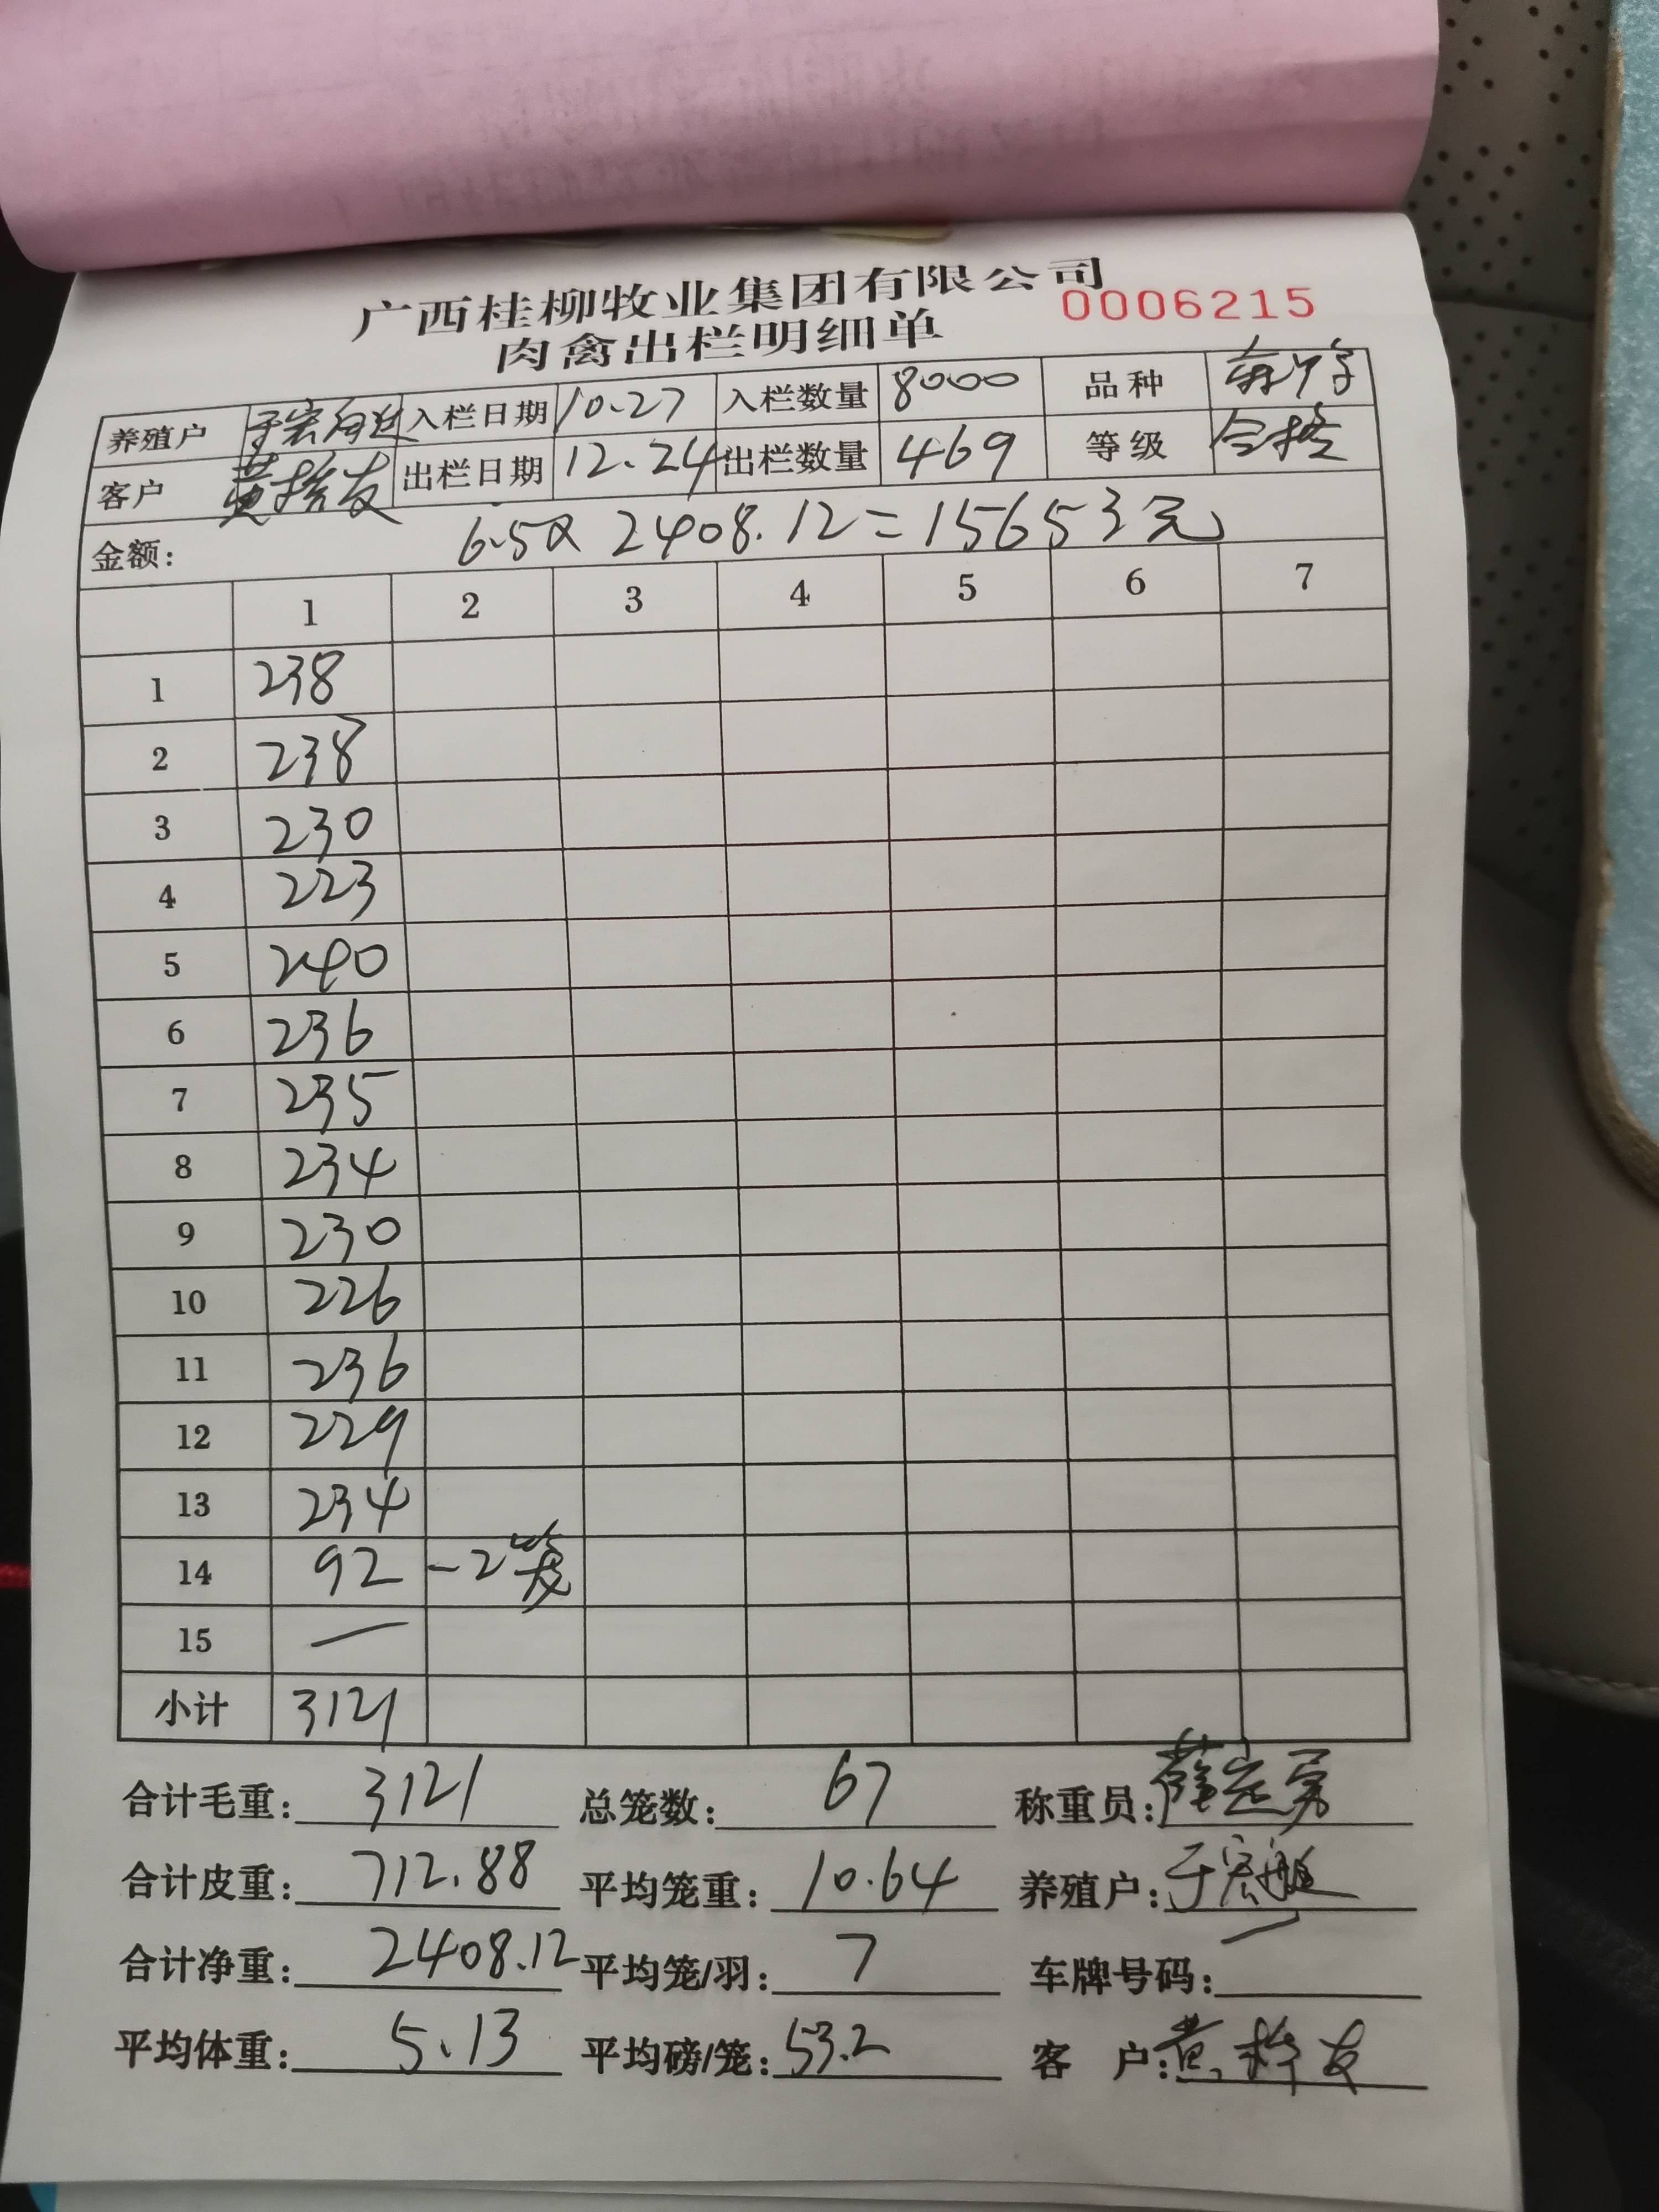 广西桂柳牧业集团有限公司
0006215
肉禽出栏明细单
养殖户 于宏 入栏日期 10.27 入栏数量 8000 品种
客户 黄 友 出栏日期 12.24 出栏数量 469 等级 合格
金额: 6.5 × 2408.12 = 15653元
1 2 3 4 5 6 7
1 238
2 238
3 230
4 223
5 240
6 236
7 235
8 234
9 230
10 226
11 236
12 229
13 234
14 92 -2笼
15 —
小计 3121
合计毛重: 3121 总笼数: 67 称重员:
合计皮重: 712.88 平均笼重: 10.64 养殖户: 于宏
合计净重: 2408.12 平均笼/羽: 7 车牌号码:
平均体重: 5.13 平均磅/笼: 53.2 客 户: 黄 友